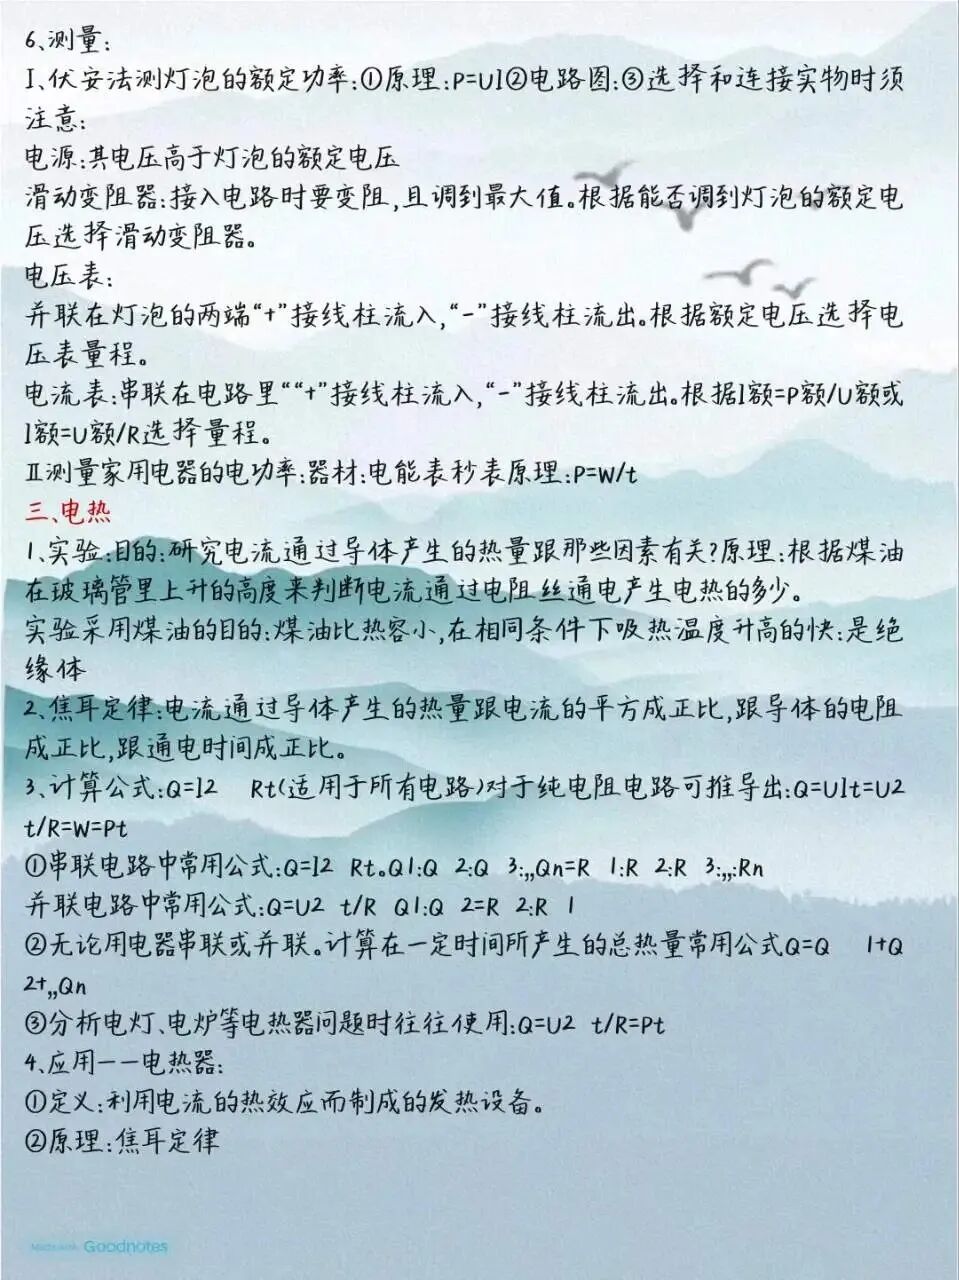 6、测量:
Ⅰ、伏安法测灯泡的额定功率:①原理:P=UI②电路图:③选择和连接实物时须
注意:
电源:其电压高于灯泡的额定电压
滑动变阻器:接入电路时要变阻,且调到最大值。根据能否调到灯泡的额定电
压选择滑动变阻器。
电压表:
并联在灯泡的两端“+”接线柱流入,“-”接线柱流出。根据额定电压选择电
压表量程。
电流表:串联在电路里““+”接线柱流入,“-”接线柱流出。根据I额=P额/U额或
I额=U额/R选择量程。
Ⅱ测量家用电器的电功率:器材:电能表秒表原理:P=W/t
三、电热
1、实验:目的:研究电流通过导体产生的热量跟那些因素有关?原理:根据煤油
在玻璃管里上升的高度来判断电流通过电阻丝通电产生电热的多少。
实验采用煤油的目的:煤油比热容小,在相同条件下吸热温度升高的快:是绝
缘体
2、焦耳定律:电流通过导体产生的热量跟电流的平方成正比,跟导体的电阻
成正比,跟通电时间成正比。
3、计算公式:Q=I2 Rt(适用于所有电路)对于纯电阻电路可推导出:Q=UIt=U2
t/R=W=Pt
①串联电路中常用公式:Q=I2 Rt。Q1:Q 2:Q 3:„Qn=R 1:R 2:R 3:„:Rn
并联电路中常用公式:Q=U2 t/R Q1:Q 2=R 2:R 1
②无论用电器串联或并联。计算在一定时间所产生的总热量常用公式Q=Q 1+Q
2+„Qn
③分析电灯、电炉等电热器问题时往往使用:Q=U2 t/R=Pt
4、应用——电热器:
①定义:利用电流的热效应而制成的发热设备。
②原理:焦耳定律
Made with Goodnotes